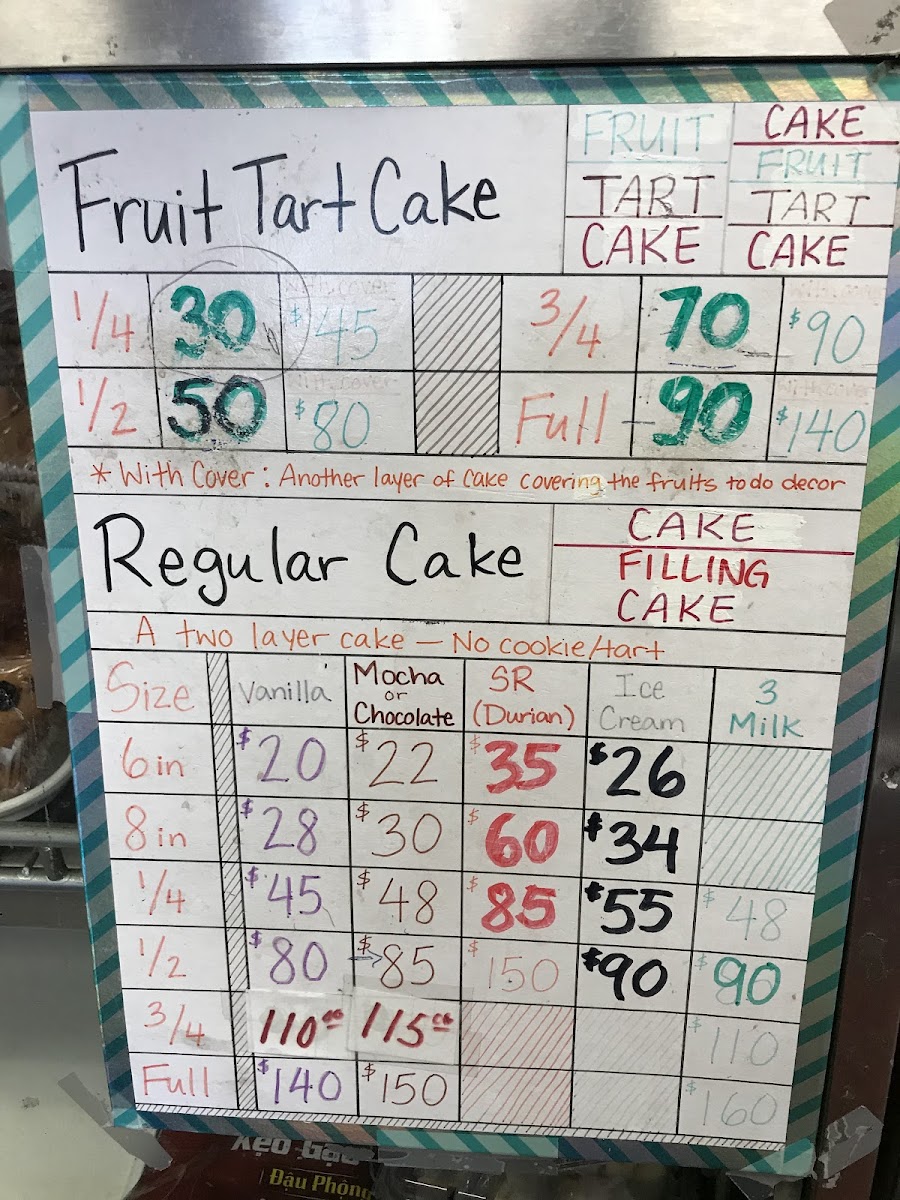 Fruit Tart Cake
FRUIT
TART
CAKE
CAKE
FRUIT
TART
CAKE
1/4 30 With cover $45 3/4 70 $90
1/2 50 With cover $80 Full 90 $140
* With Cover: Another layer of cake covering the fruits to do decor
Regular Cake
CAKE
FILLING
CAKE
A two layer cake — No cookie/tart
Size Vanilla Mocha or Chocolate SR (Durian) Ice Cream 3 Milk
6in $20 $22 $35 $26
8in $28 $30 $60 $34
1/4 $45 $48 $85 $55 $48
1/2 $80 $85 $150 $90 $90
3/4 110 115 $110
Full $140 $150 $160
Đậu Phộng